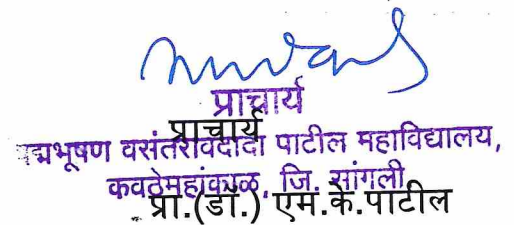 प्राचार्य
प्राचार्य
पद्मभूषण वसंतरावदादा पाटील महाविद्यालय,
कवठेमहांकाळ, जि. सांगली
प्रा.(डॉ.) एम.के.पाटील